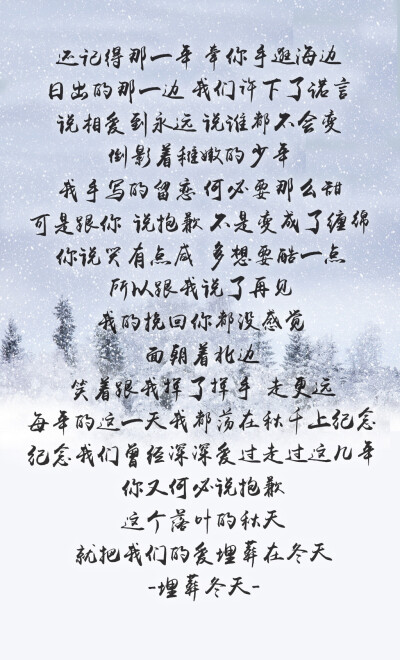 还记得那一年 牵你手逛海边
日出的那一边 我们许下了诺言
说相爱到永远 说谁都不会变
倒影着稚嫩的少年
我手写的留恋 何必要那么甜
可是跟你 说抱歉 不是变成了缠绵
你说哭有点咸 多想要酷一点
所以跟我说了再见
我的挽回你都没感觉
面朝着北边
笑着跟我挥了挥手 走更远
每年的这一天我都荡在秋千上纪念
纪念我们曾经深深爱过走过这几年
你又何必说抱歉
这个落叶的秋天
就把我们的爱埋葬在冬天
-埋葬冬天-